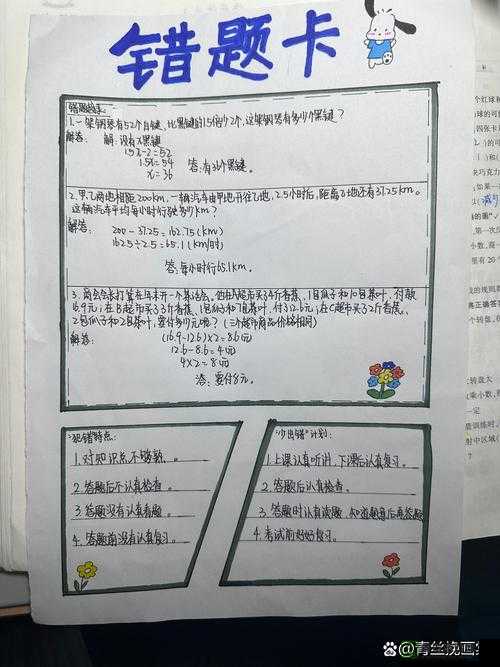 错题卡
错题记录:
1.一架钢琴有52个白键,比黑键的1.5倍少2个,这架钢琴有多少个黑键?
解答: 解:设有x个黑键
1.5x-2=52
1.5x=54
x=36
答:有36个黑键。
2.甲乙两地相距200km,一辆汽车由甲地开往乙地,2.5小时后,距离乙地还有37.25km。
这辆汽车平均每小时行驶多少km?
解答: 200-37.25=162.75(km)
162.5÷2.5=65.1(km/时)
答:每小时行65.1km。
16.9元;在B超市买3斤香蕉、1包瓜子和7包茶叶,付12.6元;在C超市买2斤香蕉、
2包瓜子和2包茶叶,要付多少元呢?(三个超市商品价格相同)
解答: (16.9-12.6)×2=8.6(元)
12.6-8.6=4(元)
4×2=8(元)
答:要付8元。
"犯错"特点:
1.对知识点不够熟。
2.答题后不认真检查。
3.答题没有认真看题。
4.答题前没有认真复习。
"少出错"计划:
1.上课认真听讲,下课后认真复习。
2.答题后认真检查。
3.答题时认真读题,知道题意后再答题
4.考试前好好复习。